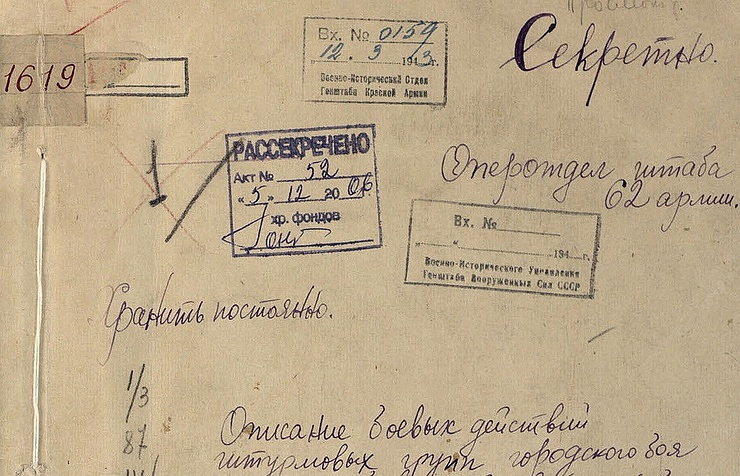 Секретно.
Вх. № 0159
12. 3 1943г.
Военно-Исторический Отдел
Генштаба Красной Армии
1619
1
РАССЕКРЕЧЕНО
Акт № 52
"5" 12 2006г.
хр. фондов
Опероτдел штаба
62 армии.
Вх. №
" " 194 г.
Военно-Исторического Управления
Генштаба Вооруженных Сил СССР
Хранить постоянно.
1/3
87
Описание боевых действий
штурмовых групп городского боя